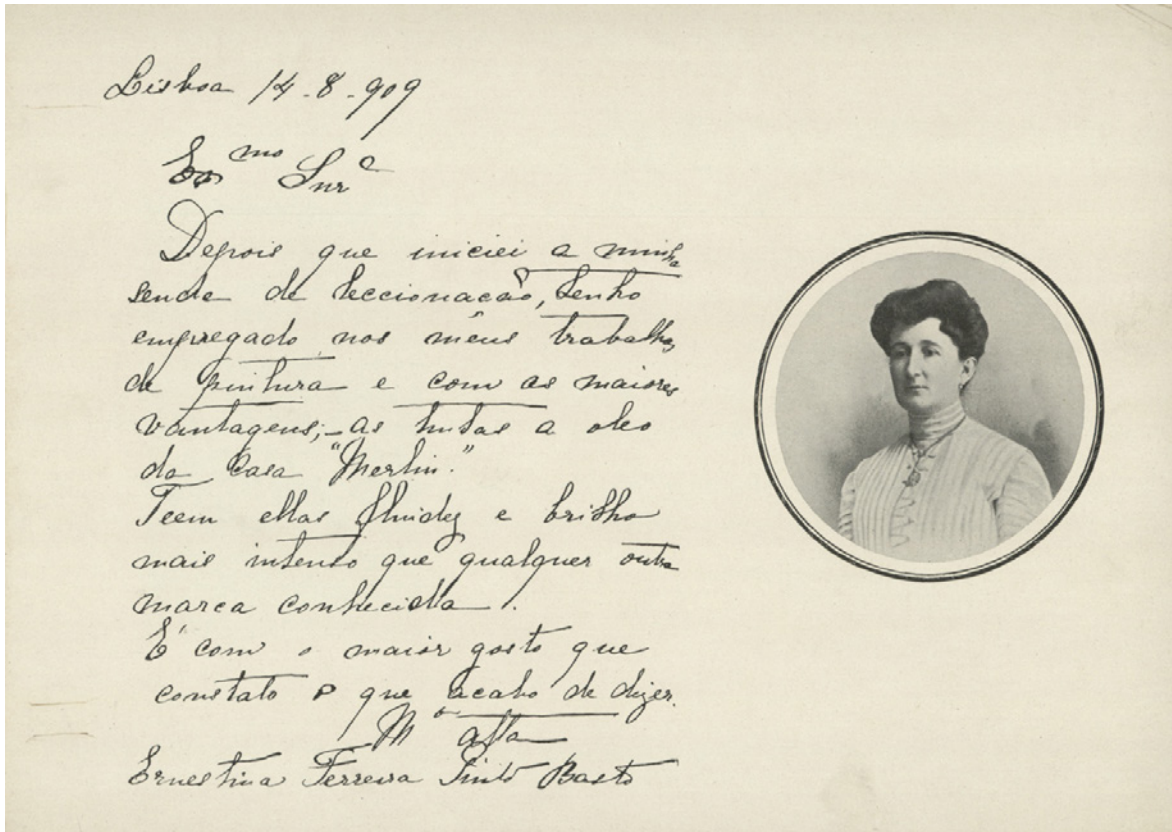 Lisboa 14-8-909
Ex.mo Snr.
Depois que iniciei a minha
senda de leccionação, tenho
empregado nos mêus trabalhos
de pintura e com as maiores
vantagens;- as tintas a oleo
da Casa "Merlin."
Teem ellas fluidez e brilho
mais intenso que qualquer outra
marca conhecida.
É com o maior gosto que
constato o que acabo de dizer.
M.to Atta
Ernestina Ferreira Pinto Basto